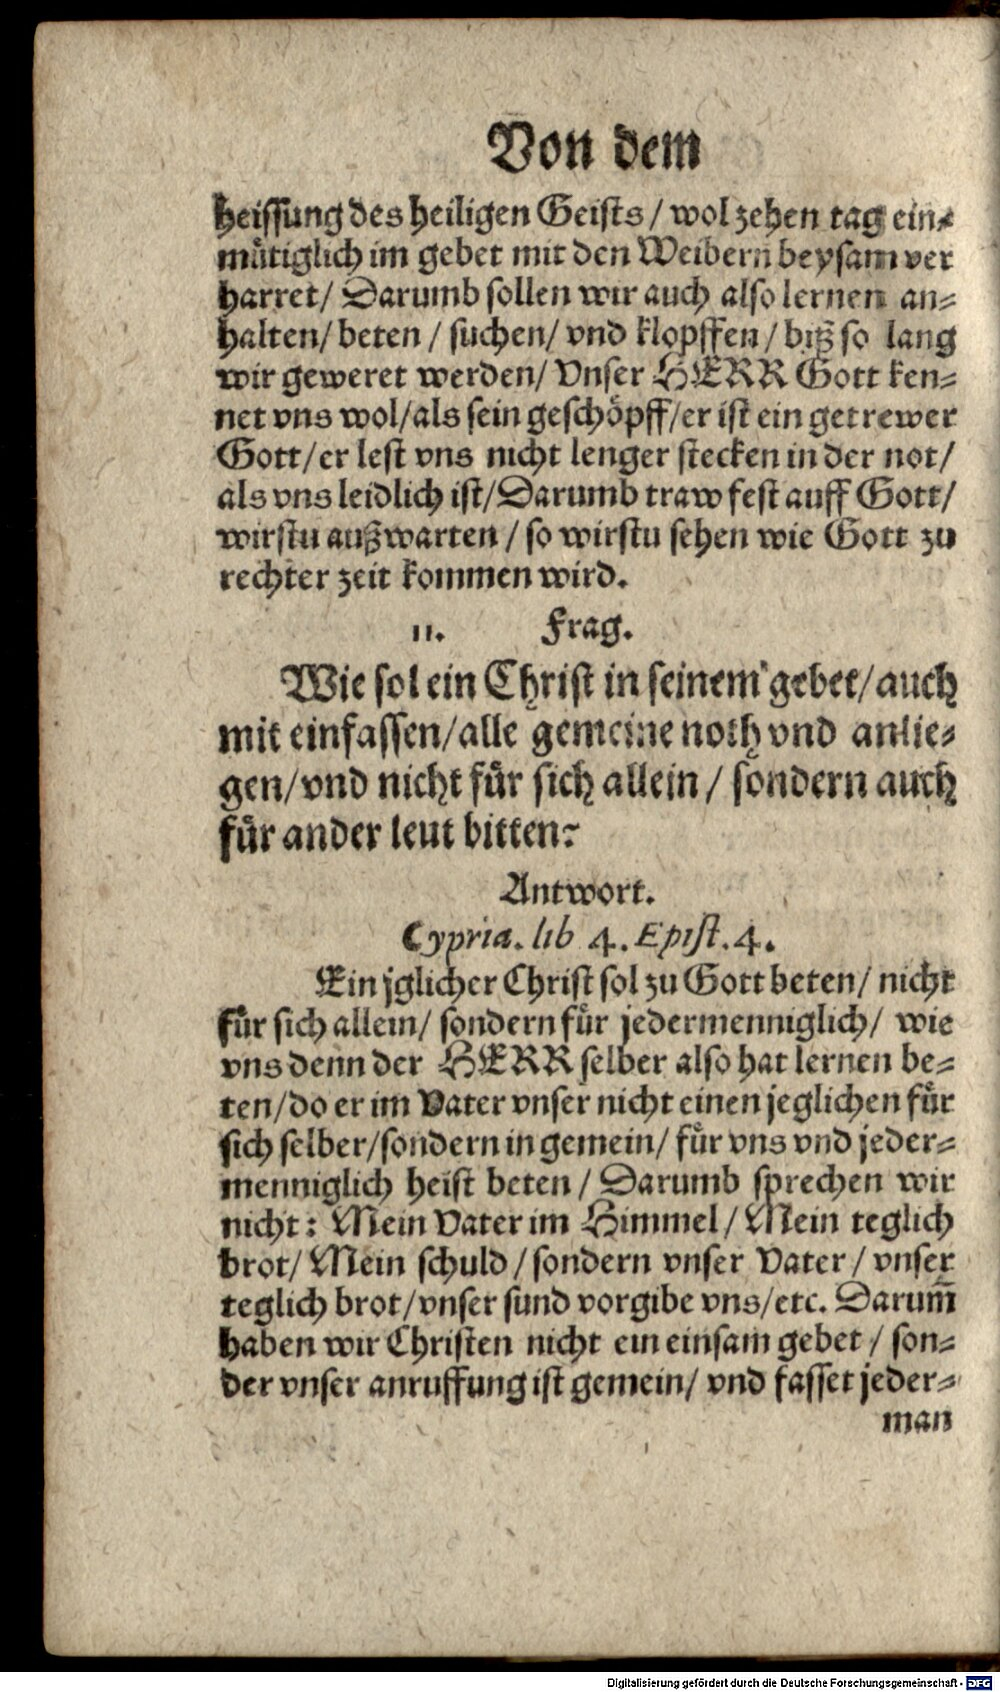 Von dem
heissung des heiligen Geists / wol zehen tag ein-
mütiglich im gebet mit den Weibern beysam ver
harret / Darumb sollen wir auch also lernen an-
halten / beten / suchen / vnd klopffen / biß so lang
wir geweret werden / Vnser HERR Gott ken-
net vns wol / als sein geschöpff / er ist ein getrewer
Gott / er lest vns nicht lenger stecken in der not /
als vns leidlich ist / Darumb traw fest auff Gott /
wirstu außwarten / so wirstu sehen wie Gott zu
rechter zeit kommen wird.
11. Frag.
Wie sol ein Christ in seinem gebet / auch
mit einfassen / alle gemeine noth vnd anlie-
gen / vnd nicht für sich allein / sondern auch
für ander leut bitten?
Antwort.
Cypria. lib 4. Epist. 4.
Ein jglicher Christ sol zu Gott beten / nicht
für sich allein / sondern für jedermenniglich / wie
vns denn der HERR selber also hat lernen be-
ten / do er im Vater vnser nicht einen jeglichen für
sich selber / sondern in gemein / für vns vnd jeder-
menniglich heist beten / Darumb sprechen wir
nicht: Mein Vater im Himmel / Mein teglich
brot / Mein schuld / sondern vnser Vater / vnser
teglich brot / vnser sund vorgibe vns / etc. Darum̄
haben wir Christen nicht ein einsam gebet / son-
der vnser anruffung ist gemein / vnd fasset jeder-
man
Digitalisierung gefördert durch die Deutsche Forschungsgemeinschaft - DFG